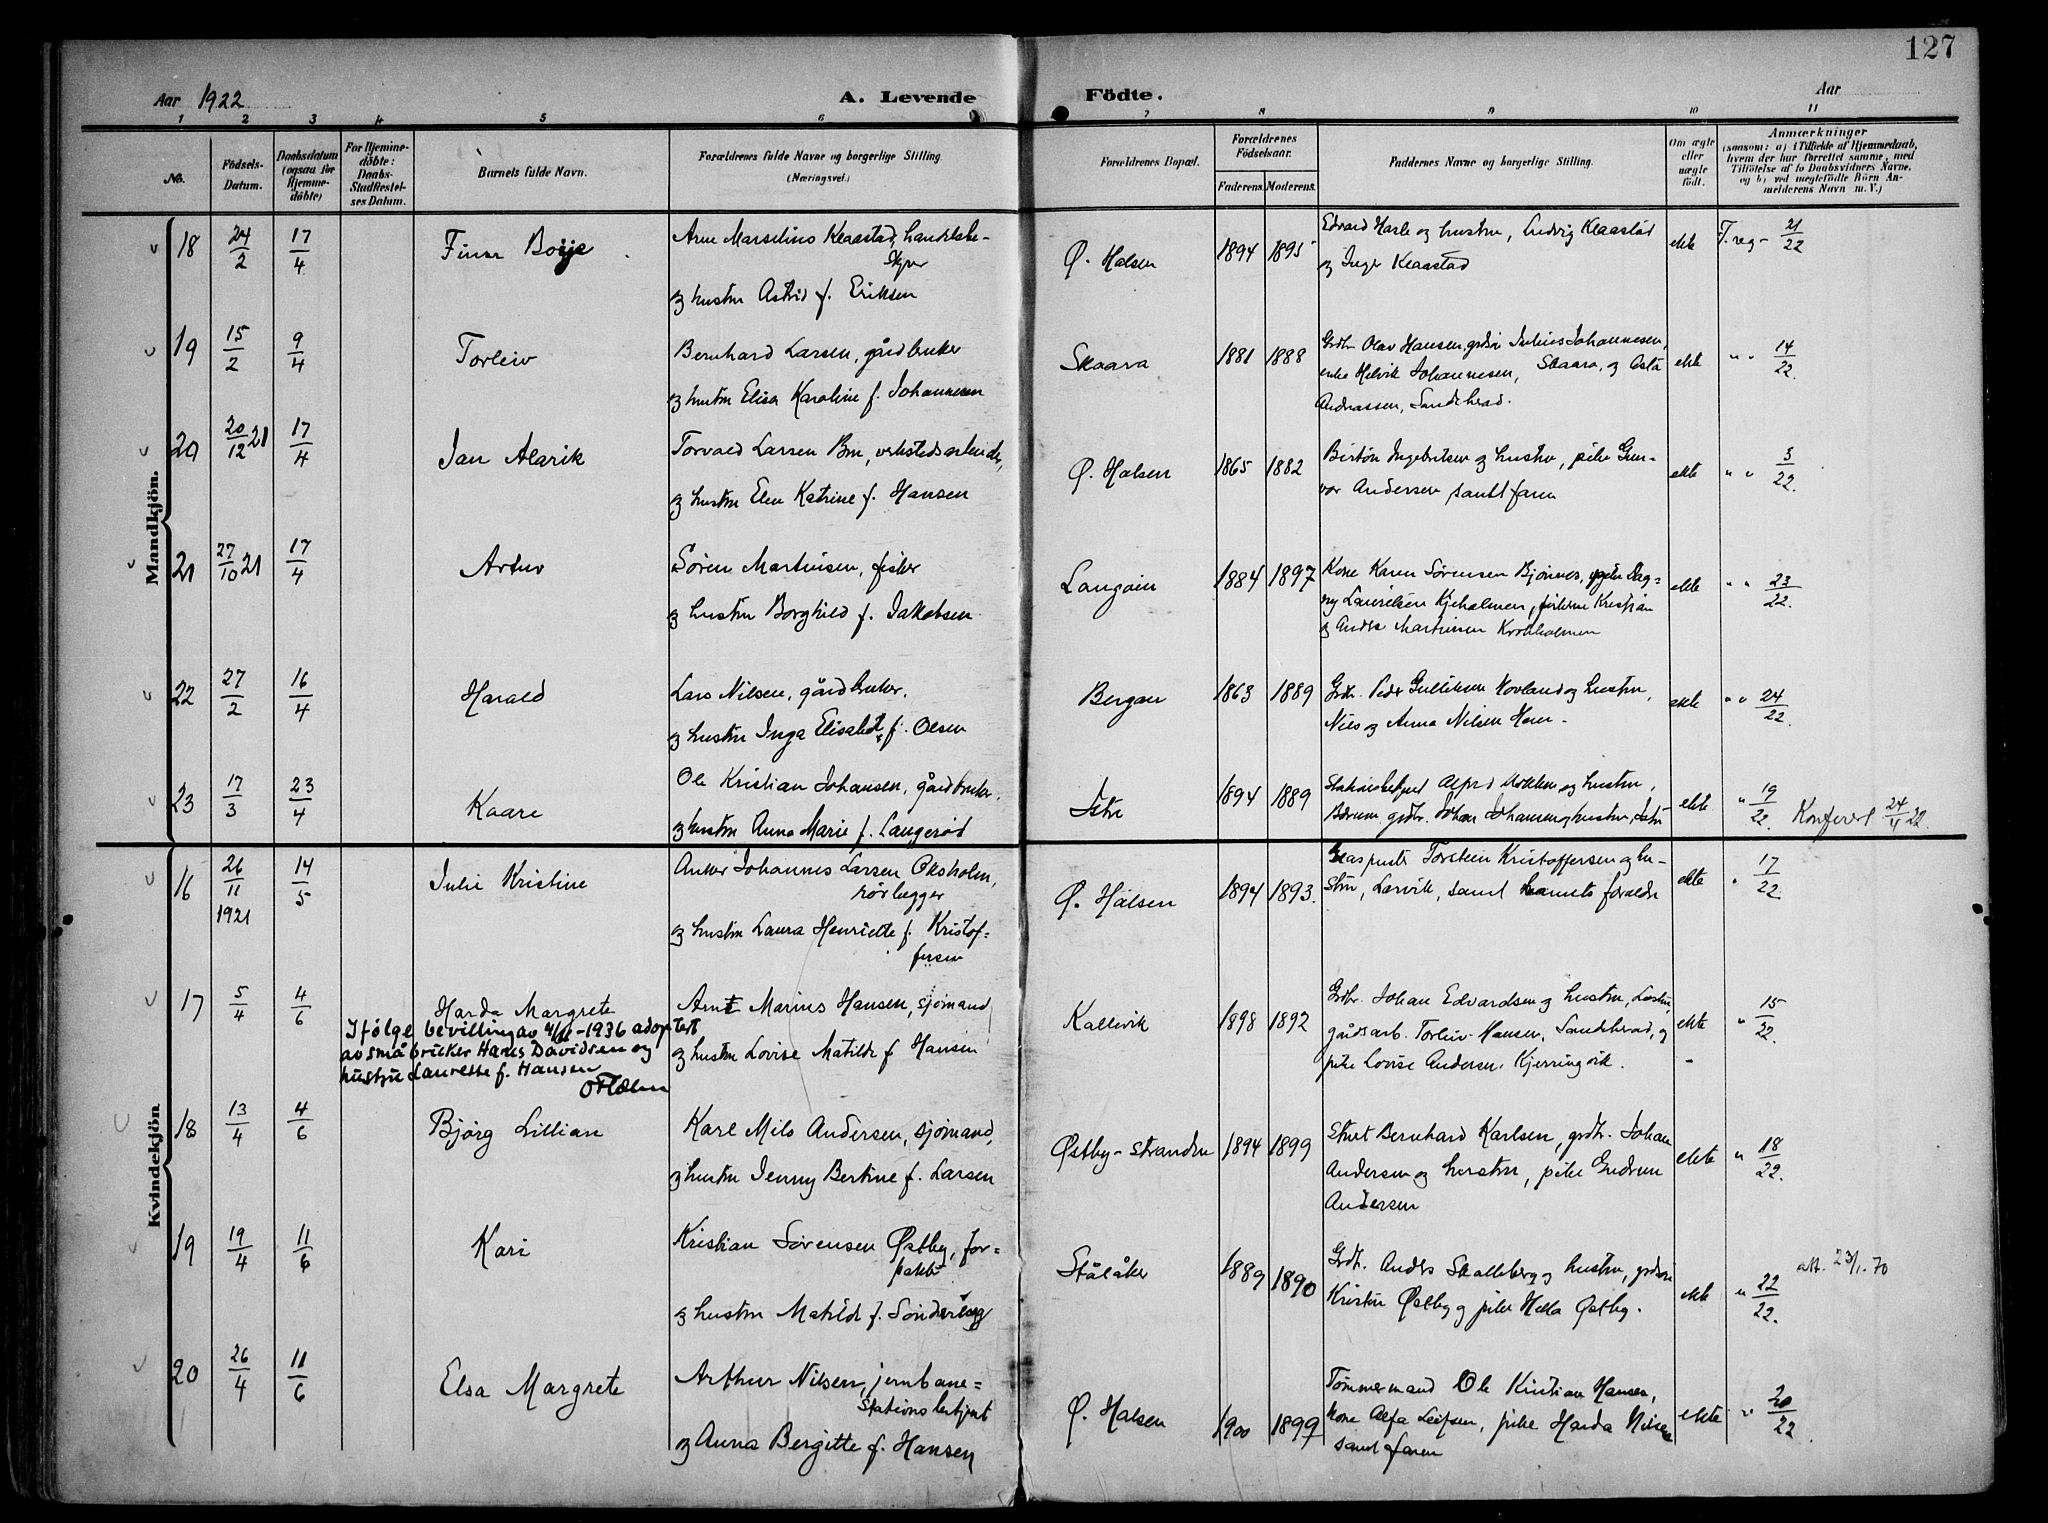 127
Aar 1922
A. Levende Födte.
Aar
1 2 3 4 5 6 7 8 9 10 11
No.
Födsels-
Datum.
Daabsdatum
(ogsaa for
Hjemme-
döbte)
For Hjemme-
döbte:
Daabs-
Stadfæstel-
ses Datum.
Barnets fulde Navn.
Forældrenes fulde Navne og borgerlige Stilling.
(Næringsvei.)
Forældrenes Bopæl.
Forældrenes
Födselsaar.
Faderens. Moderens.
Faddernes Navne og borgerlige Stilling.
Om ægte
eller
uægte
födt.
Anmærkninger
(saasom: a) i Tilfælde af Hjemmedaab,
hvem der har forrettet samme, med
Tilföielse af to Daabsvidners Navne,
og b) ved uægtefödte Börn An-
melderens Navn m. V.)
Mandkjön.
18 24/2 17/4 Finn Børje Arne Marselius Klaastad, handelsbe-
styrer
og hustru Astrid f. Eriksen
Ø. Halsen 1894 1895 Edvard Hasle og hustru, Ludvig Klaastad
og Inger Klaastad
ekte T. reg - 21/22
19 15/2 9/4 Torleiv Bernhard Larsen, gårdbruker
og hustru Elisa Karoline f. Johannesen
Skaara 1881 1888 Grdbr. Olav Hansen, Julius Johannesen,
enke Helvik Johannesen, Skaara, og Asta
Andreassen, Sandeherad.
ekte " " 14/22.
20 20/12 21 17/4 Jan Alarik Torvald Larsen Bru, verkstedsarbeider,
og hustru Elen Katrine f. Hansen
Ø. Halsen 1865 1882 Ingebretsen og hustru, pike Gun-
vor Andersen samt faren
ekte " " 3/22.
21 27/10 21 17/4 Artur Søren Martinsen, fisker
og hustru Borghild f. Jakobsen
Langøen 1884 1897 Kone Karen Sørensen Bjønnes, pike Dag-
ny Lauritsen Kjeholmen, fiskerne Kristian
og Anders Martinsen Krokholmen
ekte " " 23/22.
22 27/2 16/4 Harald Lars Nilsen, gårdbruker,
og hustru Inga Elisabet f. Olsen
Bergan 1863 1889 Grdbr. Peder Gulliksen Hovland og hustru,
Nils og Anna Nilsen Hem.
ekte " " 24/22.
23 17/3 23/4 Kaare Ole Kristian Johansen, gårdbruker,
og hustru Anna Marie f. Langerød
Istre 1894 1889 Stationsbetjent Alfred Mokken og hustru,
Bærum, grdbr. Johan Johansen og hustru, Istre
ekte " 19/22. Konferert 24/4 22.
Kvindekjön
16 26/11 1921 14/5 Julie Kristine Anker Johannes Larsen Oksholm,
rørlegger
og hustru Laura Henriette f. Kristof-
fersen
Ø. Halsen 1894 1893. Glaspuster Torstein Kristoffersen og hu-
stru, Larvik, samt barnets forældre
ekte " 17/22.
17 5/4 4/6 Harda Margrete Arnt Marius Hansen, sjømand,
og hustru Lovise Matilde f. Hansen
Ifølge bevilling av 4/11-1936 adoptert
av småbruker Hans Davidsen og
hustru Laurette f. Hansen
Kallevik 1898 1892 Grdbr. Johan Edvardsen og hustru,
gårdsarb. Torleiv Hansen, Sandeherad, og
pike Lovise Andersen, Kjerringvik.
ekte - " 15/22.
18 13/4 4/6 Bjørg Lillian Karl Mils Andersen, sjømand,
og hustru Jenny Bertine f. Larsen
Østby-stranden 1894 1899 Bernhard Karlsen, grdbr. Johan
Andersen og hustru, pike Gudrun
Andersen
ekte " 18/22.
19 19/4 11/6 Kari Kristian Sørensen Østby, for-
pakter
og hustru Matilde f. Sønderberg
Stålåker 1889 1890 Grdbr. Anders Skalleberg og hustru,
Kristen Østby og pike Hella Østby.
ekte " 22/22. att. 23/1.70
20 26/4 11/6 Elsa Margrete Arthur Nilsen, jernbane-
stationsbetjent
og Anna Bergitte f. Hansen
Ø. Halsen 1900 1899 Tømmermand Ole Kristian Hansen,
kone Alfa Leifsen, pike Harda Nilsen
samt faren
ekte " 20/22